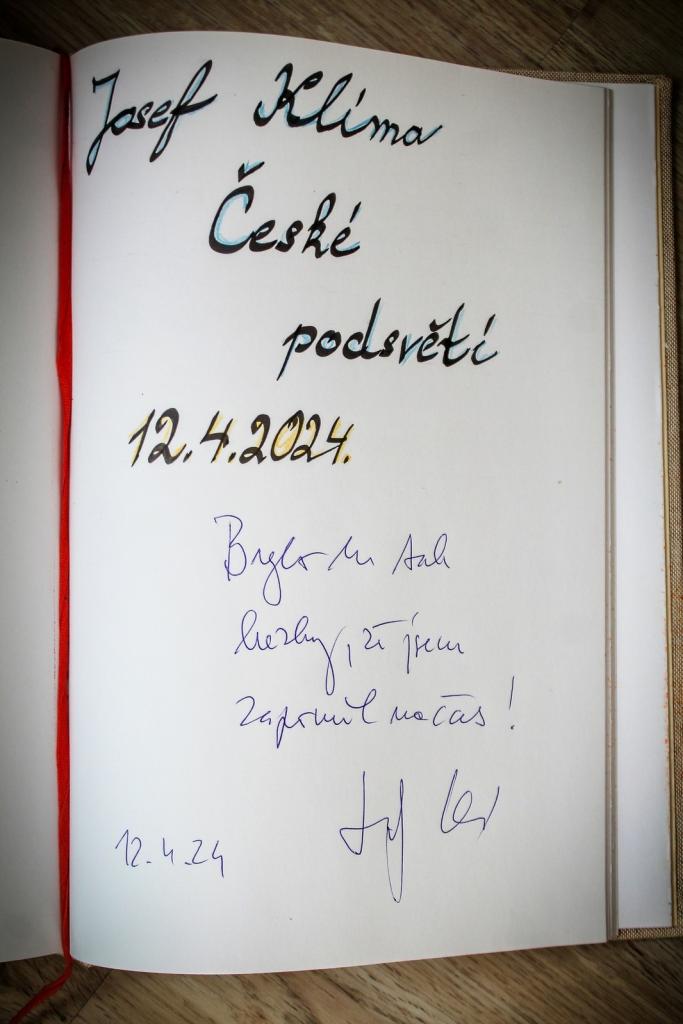 Josef Klíma
České
podsvětí
12.4.2024.
Bylo mi tak
hezky, že jsem
zapomněl na čas!
12.4.24